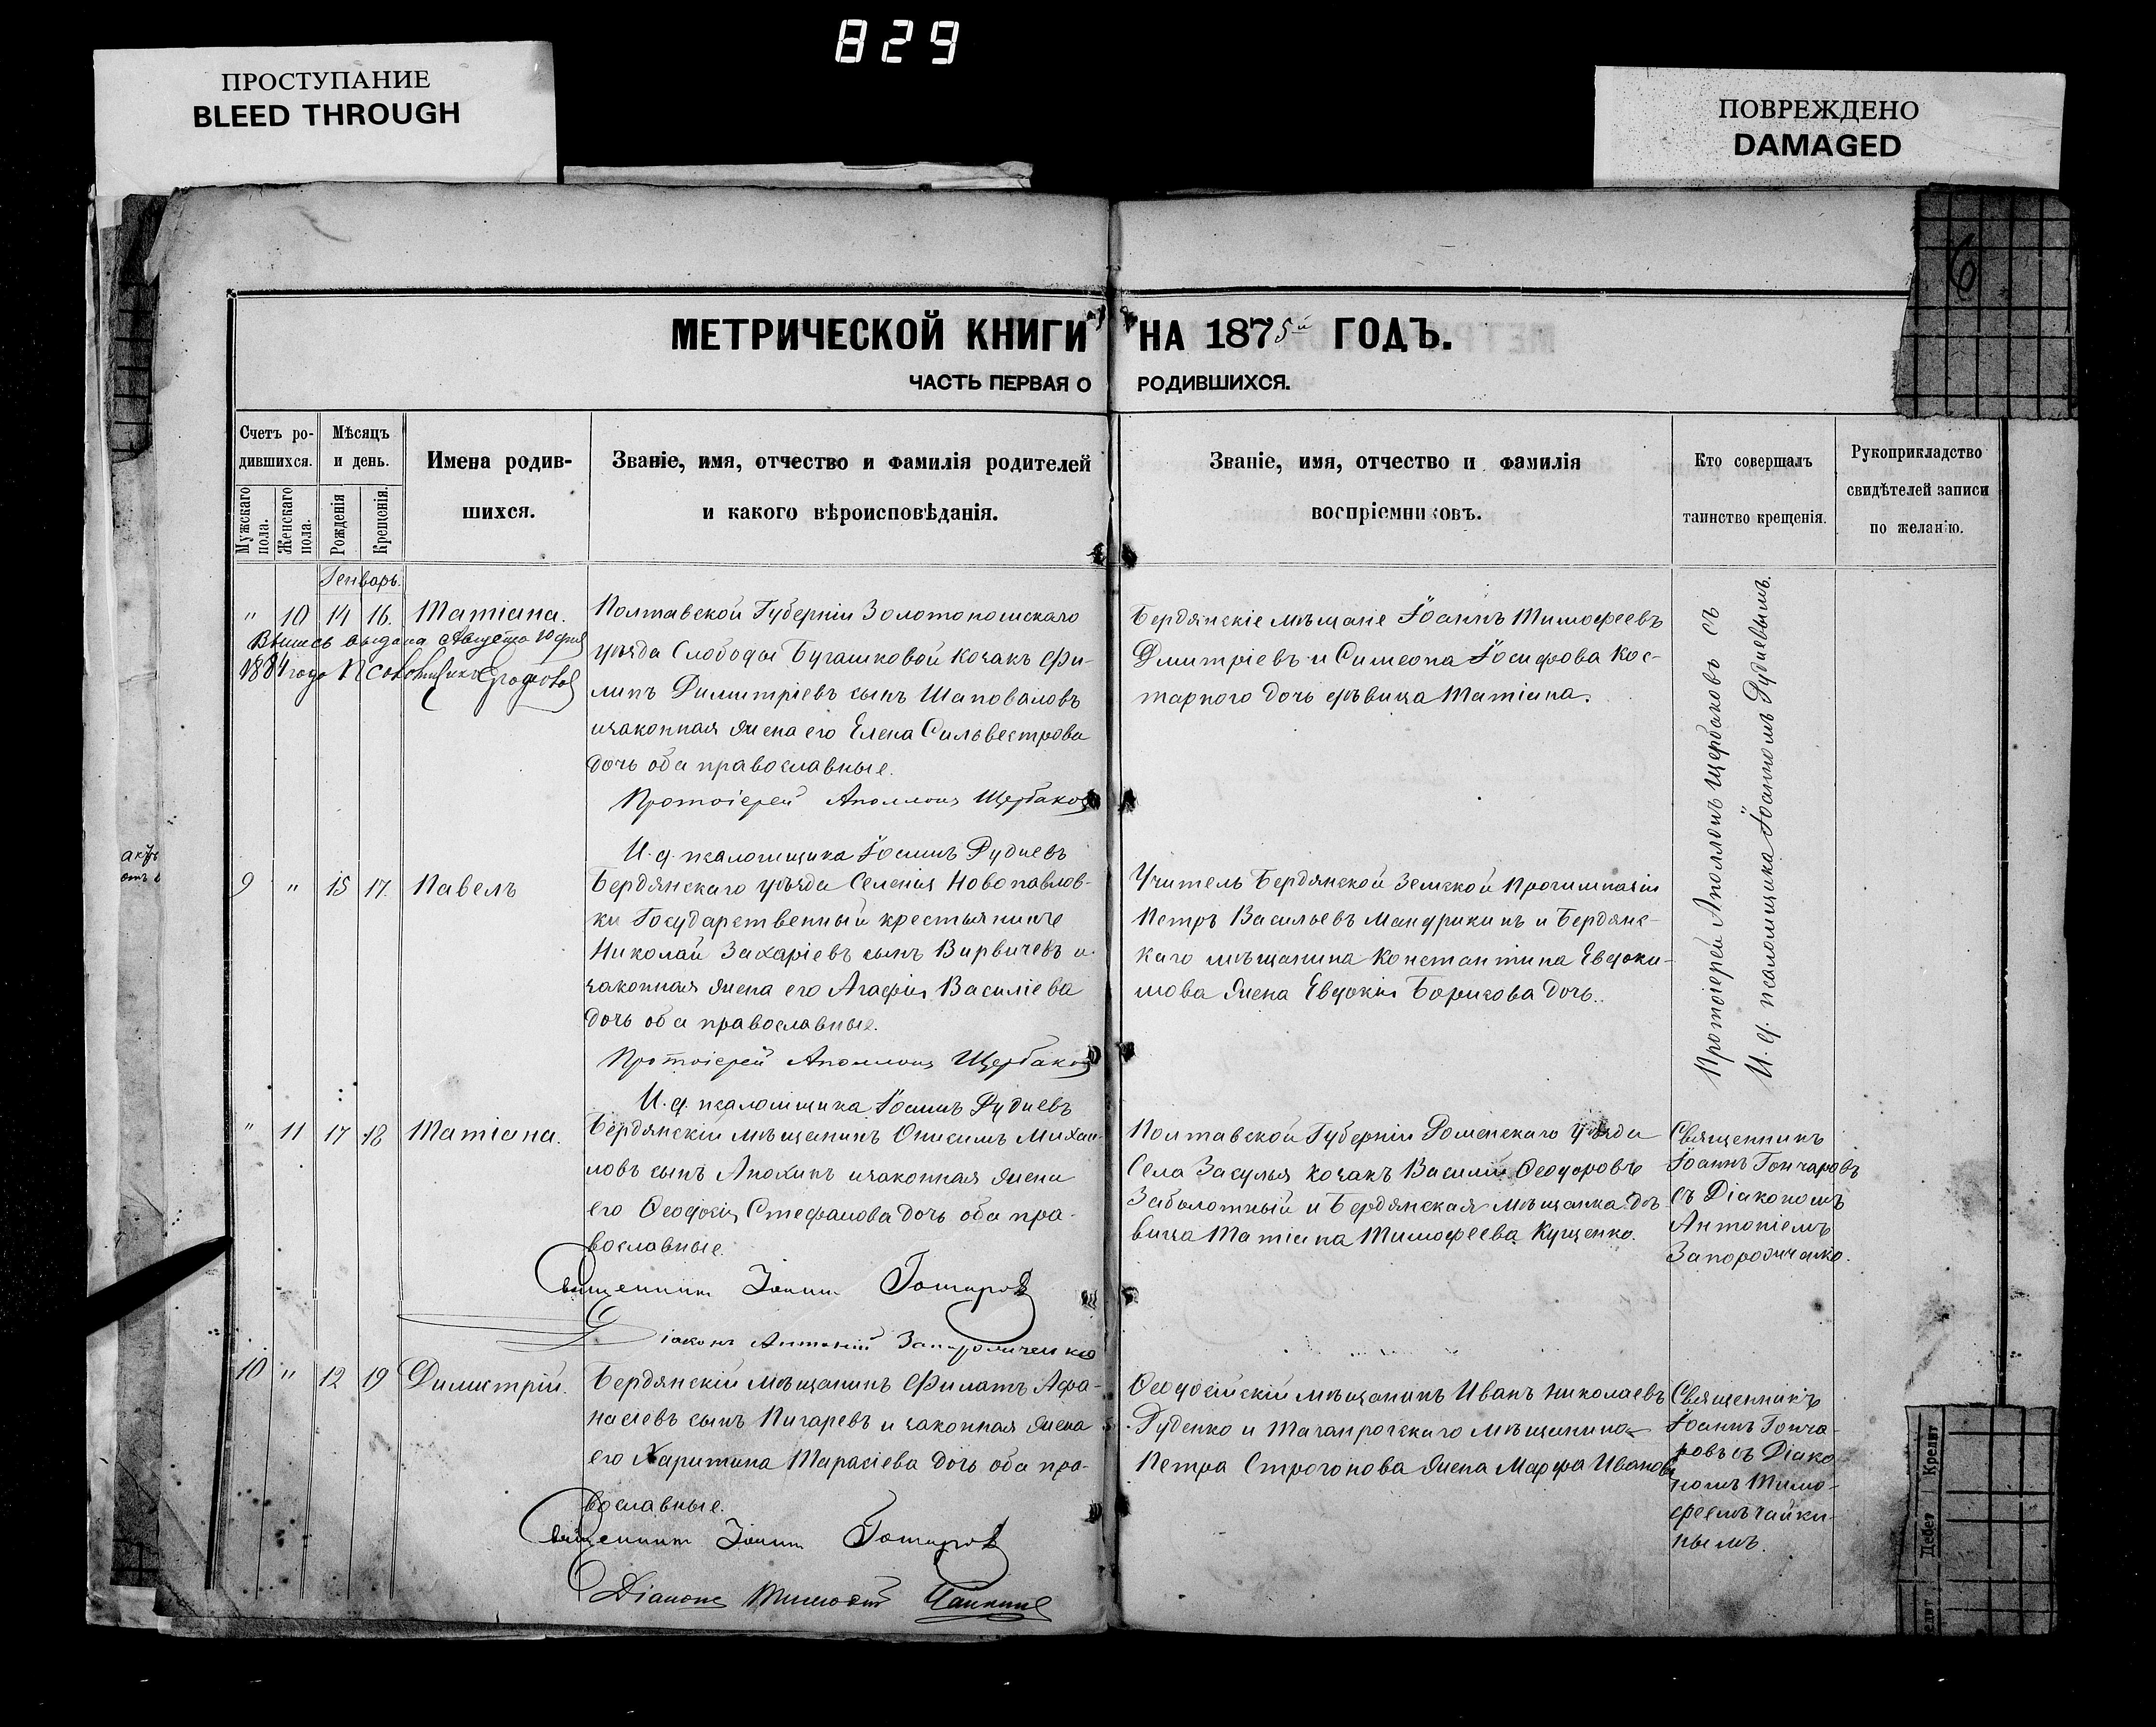 829
ПРОСТУПАНИЕ
BLEED THROUGH
ПОВРЕЖДЕНО
DAMAGED
6
МЕТРИЧЕСКОЙ КНИГИ НА 1875й ГОДЪ.
ЧАСТЬ ПЕРВАЯ О РОДИВШИХСЯ.
Счетъ ро-
дившихся.
Мужскаго пола.
Женскаго пола.
Мѣсяцъ
и день.
Рожденія
Крещенія.
Имена родив-
шихся.
Званіе, имя, отчество и фамилія родителей
и какого вѣроисповѣданія.
Званіе, имя, отчество и фамилія
воспріемниковъ.
Кто совершалъ
таинство крещенія.
Рукоприкладство
свидѣтелей записи
по желанію.
Генварь.
" 10 14 16. Татіана.
Выпись выдана Августа 10 дня
1884 года
Полтавской Губерніи Золотоношскаго
уѣзда Слободы Бугашковой козакъ Фи-
липъ Димитріевъ сынъ Шаповаловъ
изаконная жена его Елена Сильвестрова
дочь оба православные.
Протоіерей Аполлонъ Щербаковъ
И. д. псаломщика Іоаннъ Рудневъ
Бердянскіе мѣщане Іоаннъ Тимофеевъ
Дмитріевъ и Симеона Іосифова Кос-
тарного дочь дѣвица Татіана.
Протоіерей Аполлонъ Щербаковъ съ
И. д. псаломщика Іоанномъ Рудневымъ.
9 " 15 17. Павелъ
Бердянскаго уѣзда Селенія Новопавлов-
ки Государственный крестьянинъ
Николай Захаріевъ сынъ Вирвичевъ и
законная жена его Агафія Василіева
дочь оба православные.
Протоіерей Аполлонъ Щербаковъ
И. д. псаломщика Іоаннъ Рудневъ
Учитель Бердянской Земской Прогимназіи
Петръ Васильевъ Мандрикинъ и Бердянс-
каго мѣщанина Константина Евдоки-
мова жена Евдокія Борисова дочь.
" 11 17 18 Татіана.
Бердянскій мѣщанинъ Онисимъ Михаи-
ловъ сынъ Анохинъ изаконная жена
его Ѳеодосія Стефанова дочь оба пра-
вославные.
Священникъ Іоаннъ Гончаровъ
Діаконъ Антоній Запорожченко
Полтавской Губерніи Роменскаго уѣзда
Села Засулья козакъ Василій Ѳеодоровъ
Заболотный и Бердянская мѣщанка дѣ-
вица Татіана Тимофеева Кущенко.
Священникъ
Іоаннъ Гончаровъ
съ Діакономъ
Антоніемъ
Запорожченко.
10 " 12 19 Димитрій.
Бердянскій мѣщанинъ Филатъ Афа-
насіевъ сынъ Пигаревъ и законная жена
его Харитина Тарасіева дочь оба пра-
вославные.
Священникъ Іоаннъ Гончаровъ
Діаконъ Тимофей Чайкинъ
Ѳеодосійскій мѣщанинъ Иванъ Николаевъ
Руденко и Таганрогскаго мѣщанина
Петра Строгонова жена Марфа Иванова
Священникъ
Іоаннъ Гонча-
ровъ съ Діако-
номъ Тимо-
феемъ Чайки-
нымъ.
Дебет Кредит